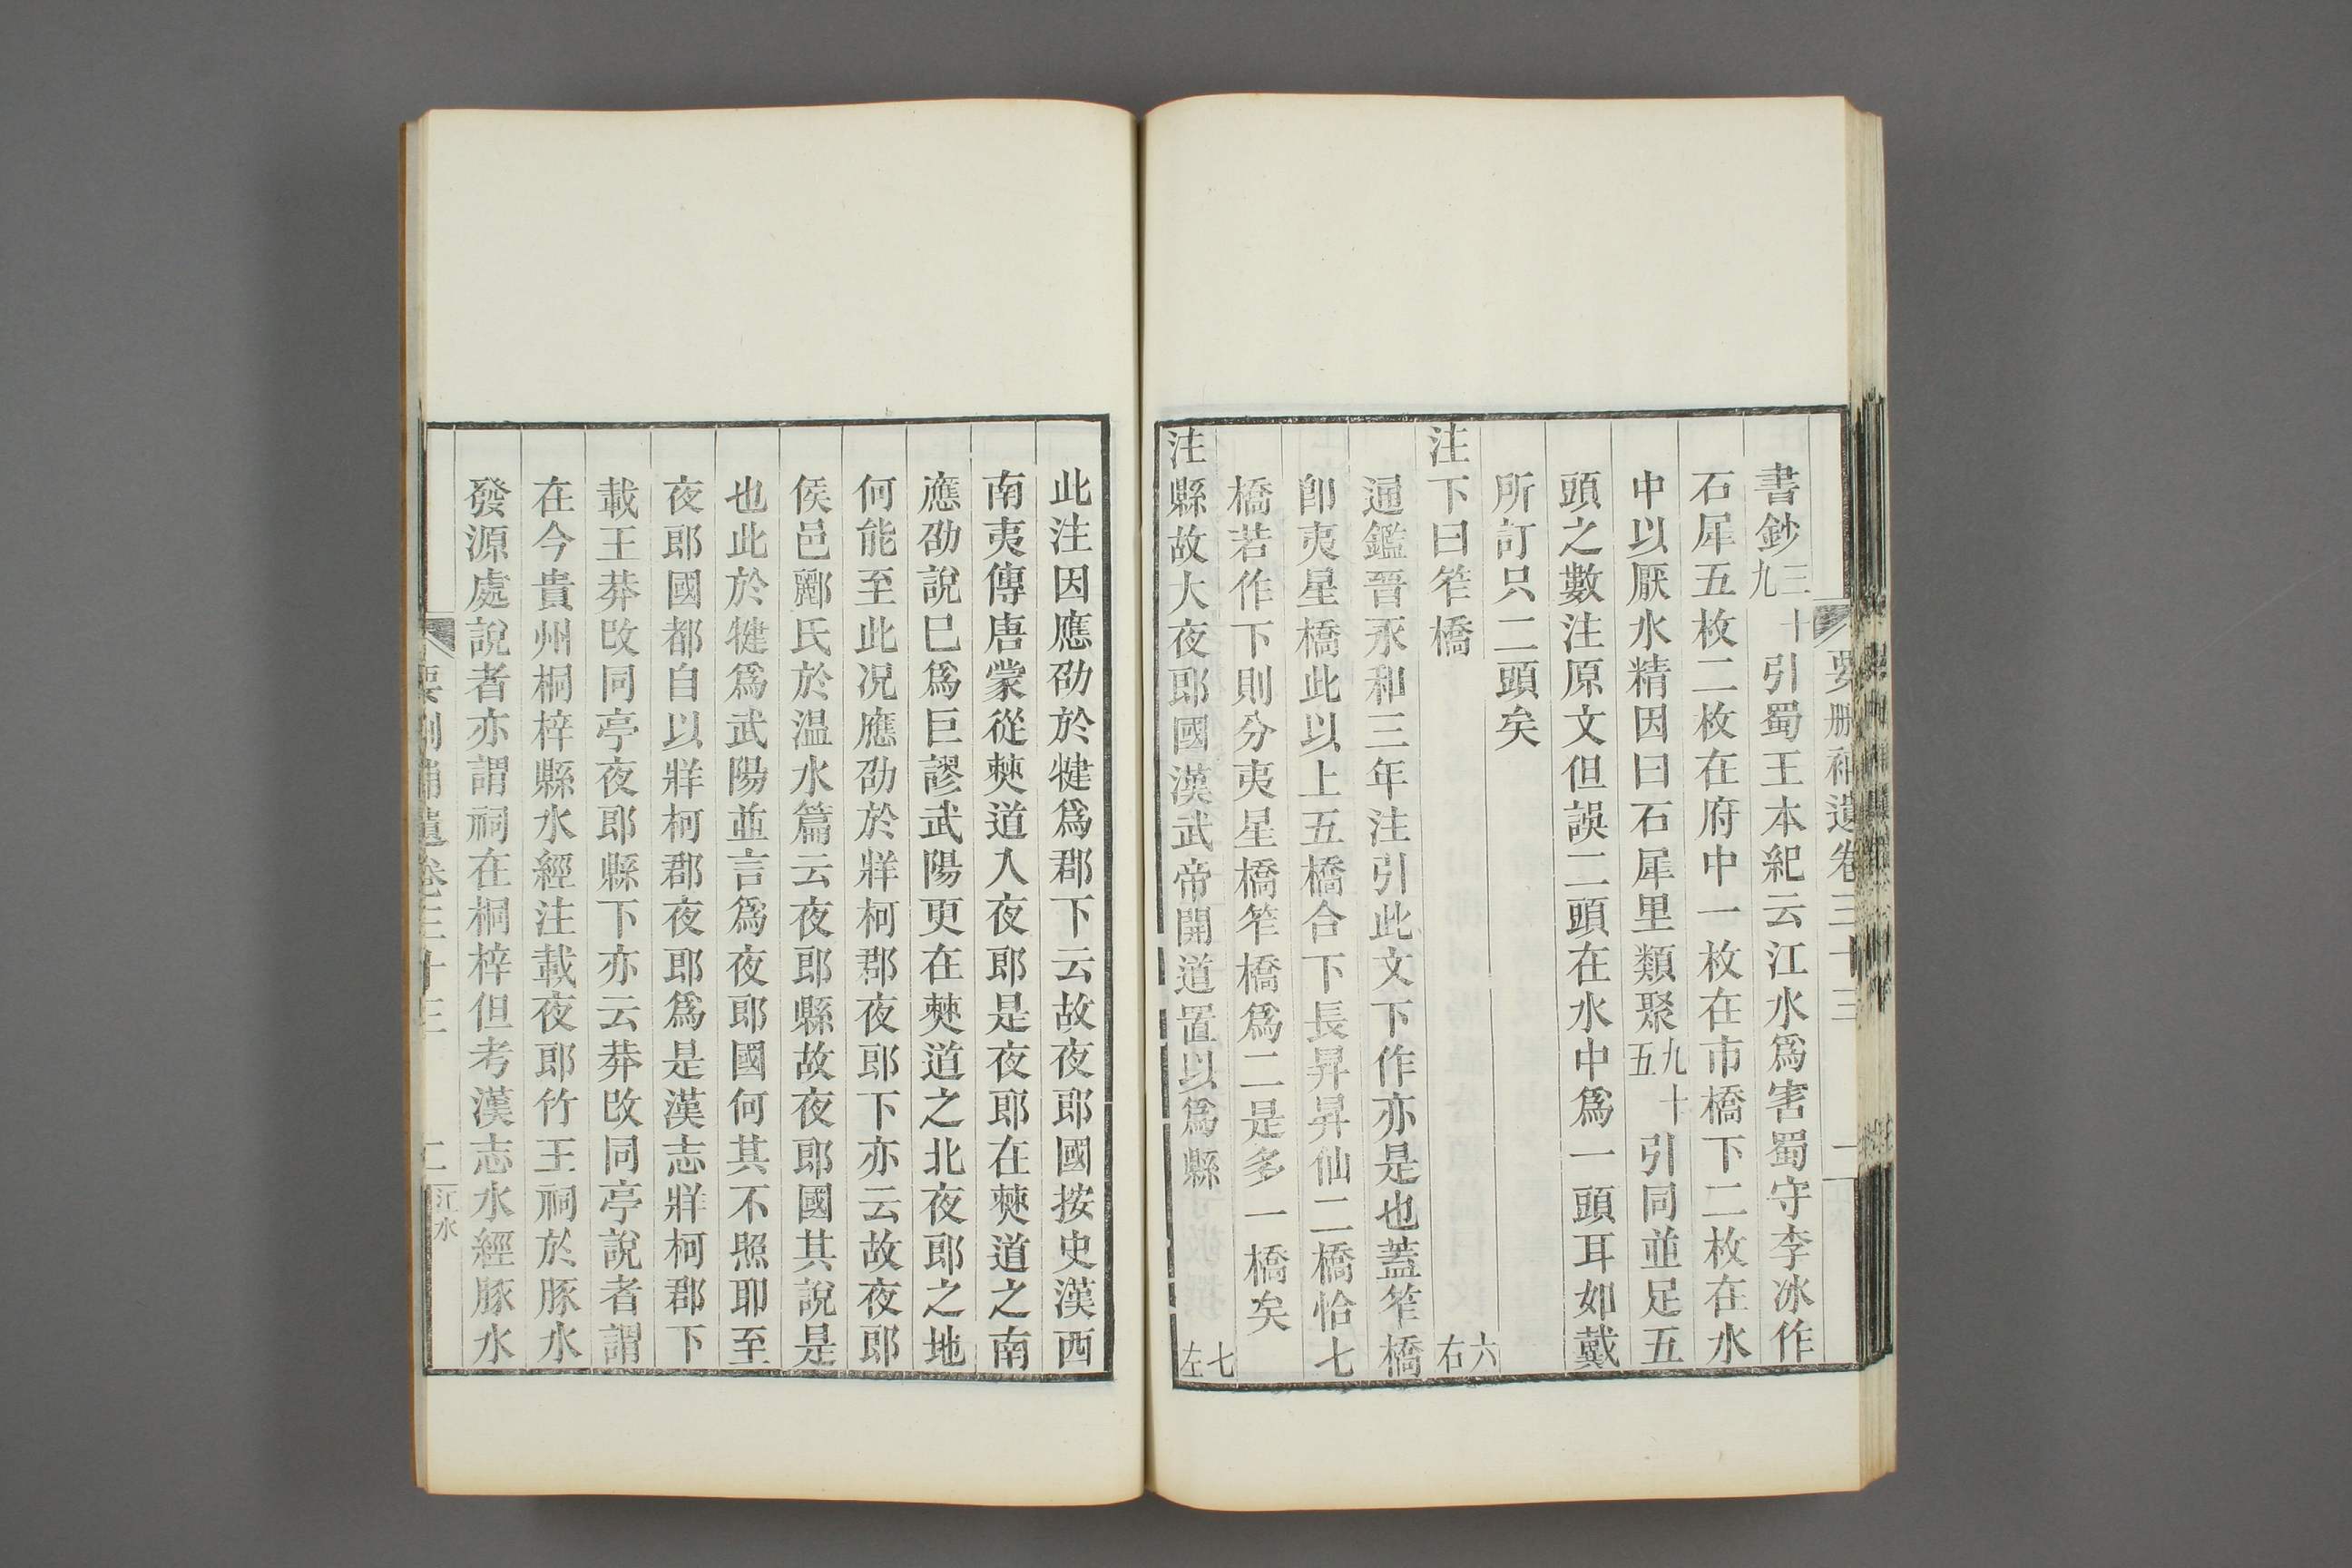 要刪補遺卷三十三
書鈔三十九引蜀王本紀云江水爲害蜀守李冰作
石犀五枚二枚在府中一枚在市橋下二枚在水
中以厭水精因曰石犀里類聚九十五引同並足五
頭之數注原文但誤二頭在水中爲一頭耳如戴
所訂只二頭矣
注下曰笮橋 六右
通鑑晉永和三年注引此文下作亦是也蓋笮橋
卽夷星橋此以上五橋合下長昇昇仙二橋恰七
橋若作下則分夷星橋笮橋爲二是多一橋矣
注縣故大夜郎國漢武帝開道置以爲縣 七左
此注因應劭於犍爲郡下云故夜郎國按史漢西
南夷傳唐蒙從僰道入夜郎是夜郎在僰道之南
應劭說已爲巨謬武陽更在僰道之北夜郎之地
何能至此况應劭於牂柯郡夜郎下亦云故夜郎
侯邑酈氏於温水篇云夜郎縣故夜郎國其說是
也此於犍爲武陽並言爲夜郎國何其不照耶至
夜郎國都自以牂柯郡夜郎爲是漢志牂柯郡下
載王莽改同亭夜郎縣下亦云莽改同亭說者謂
在今貴州桐梓縣水經注載夜郎竹王祠於豚水
發源處說者亦謂祠在桐梓但考漢志水經豚水
要刪補遺卷三十三 二 江水